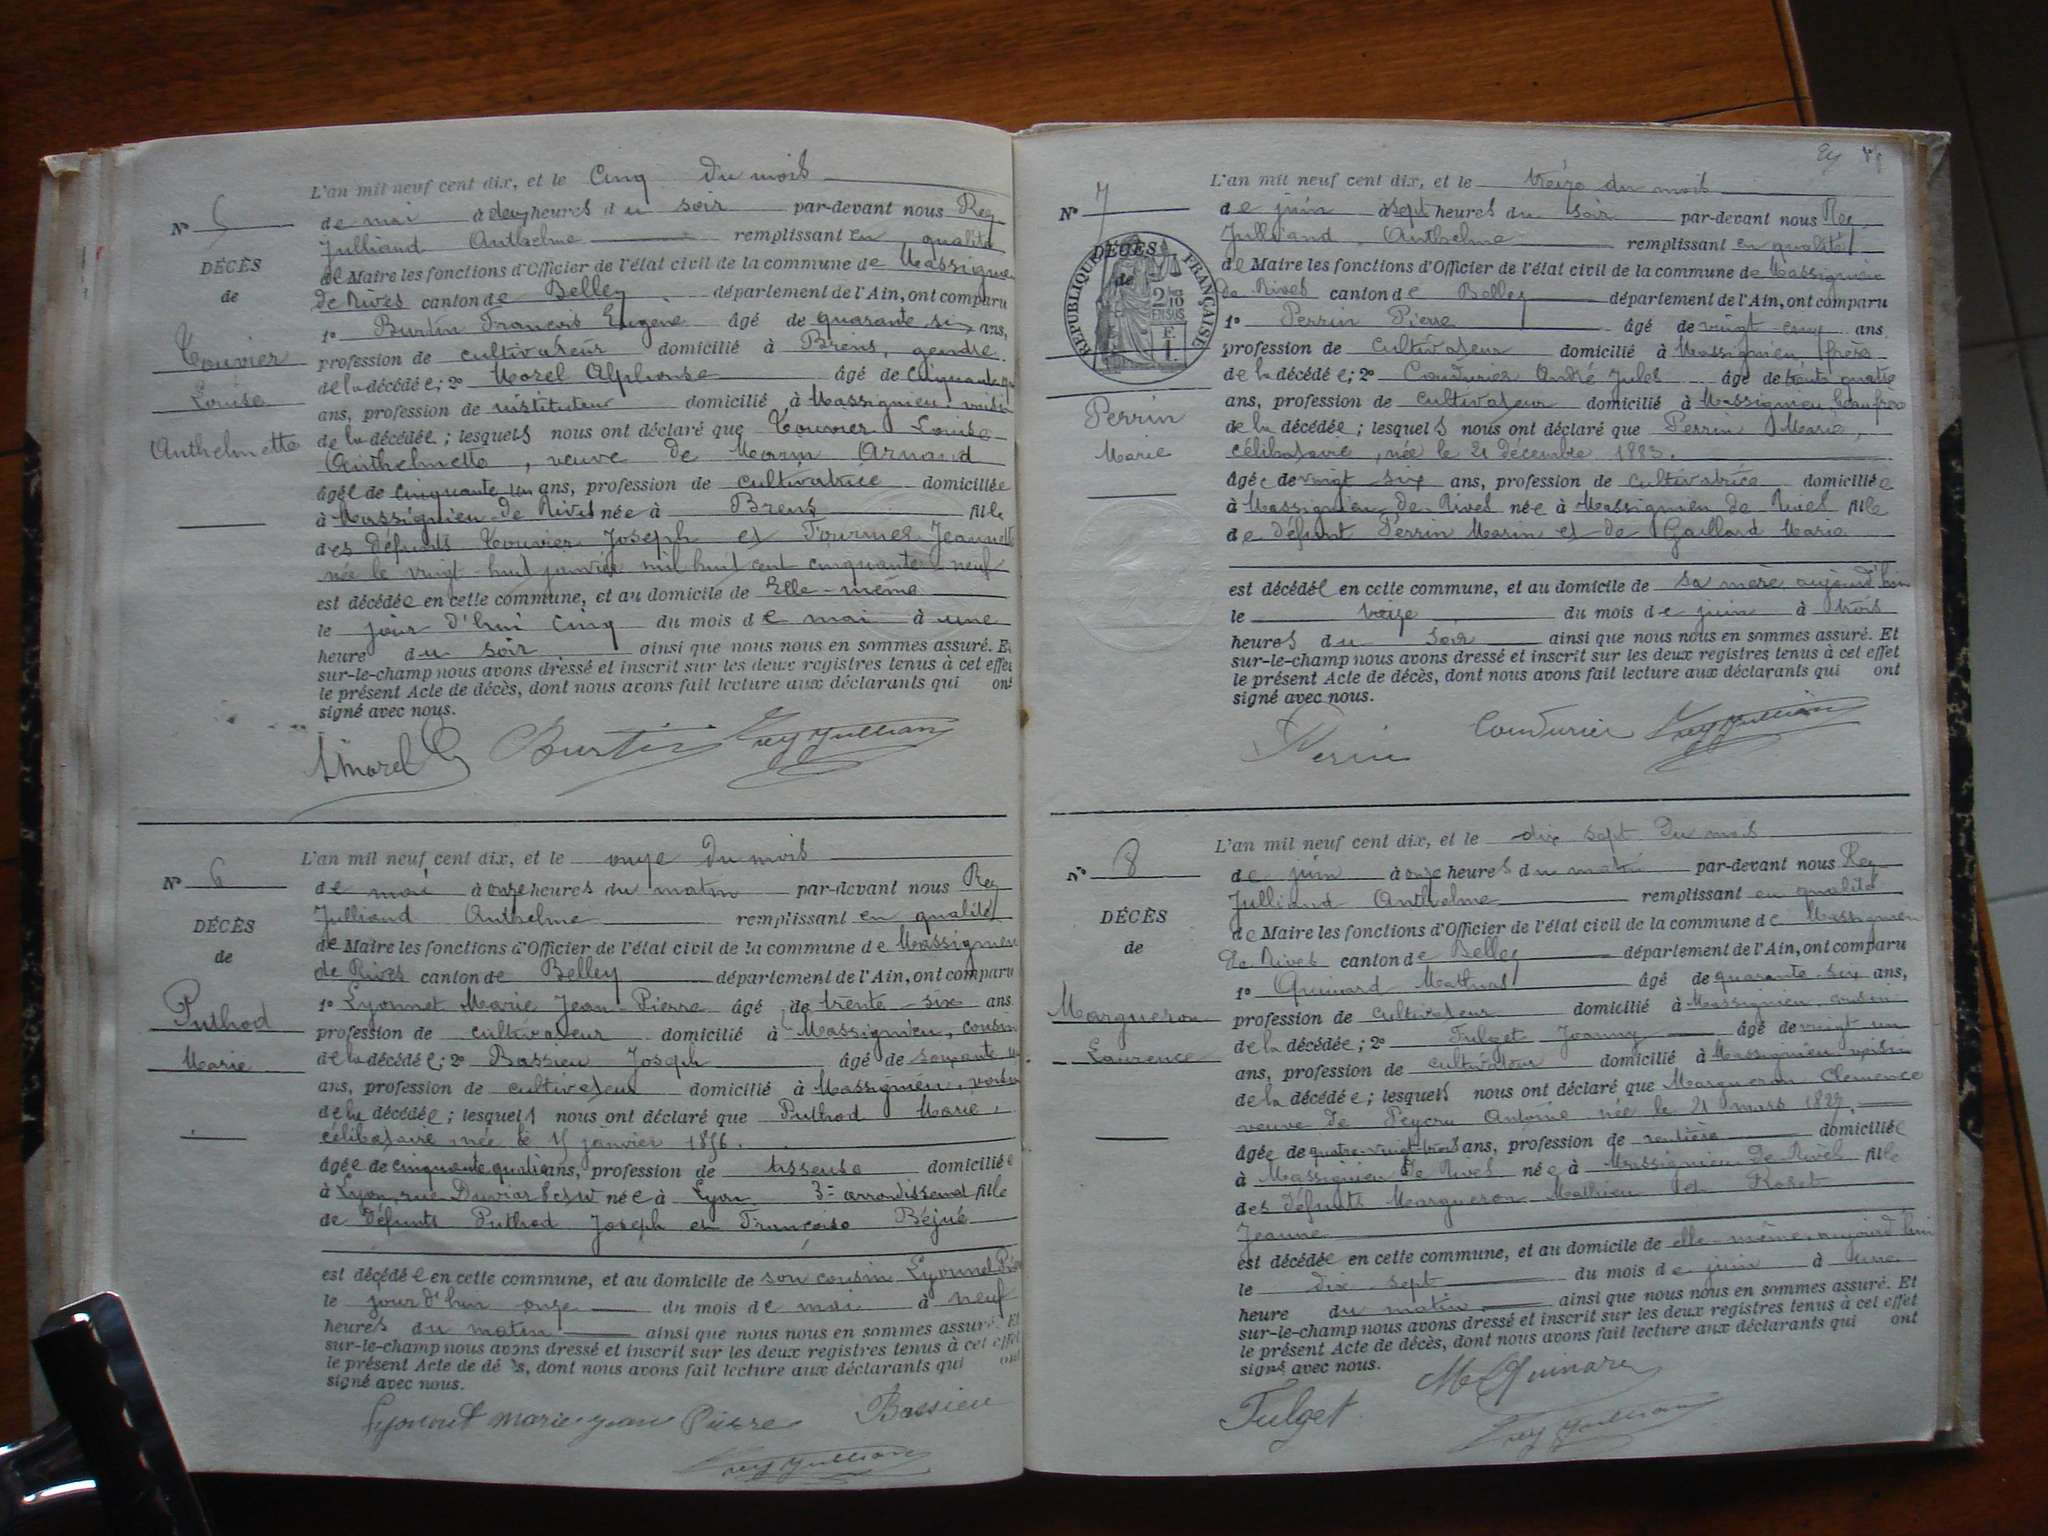 L'an mil neuf cent dix, et le Cinq du mois
N° 5
de mai à deux heures du soir par-devant nous Rey
Julliand Anthelme remplissant en qualité
DÉCÈS
de Maire les fonctions d'Officier de l'état civil de la commune de Massignieu
de
de Rives canton de Belley département de l'Ain, ont comparu
1° Burtin François Eugène âgé de quarante six ans,
Touvier
profession de cultivateur domicilié à Brens, gendre
Louise
de la décédée; 2° Morel Alphonse âgé de cinquante
ans, profession de instituteur domicilié à Massignieu, voisin
Anthelmette
de la décédée; lesquels nous ont déclaré que Touvier Louise
Anthelmette, veuve de Marin Arnaud
âgée de cinquante un ans, profession de cultivatrice domiciliée
à Massignieu de Rives née à Brens fille
des défunts Touvier Joseph et Fournier Jeannette
née le vingt-huit janvier mil huit cent cinquante neuf
est décédée en cette commune, et au domicile de Elle-même
le jour d'hui cinq du mois de mai à une
heure du soir ainsi que nous nous en sommes assuré. Et
sur-le-champ nous avons dressé et inscrit sur les deux registres tenus à cet effet
le présent Acte de décès, dont nous avons fait lecture aux déclarants qui ont
signé avec nous.
Morel Burtin Rey Julliand
L'an mil neuf cent dix, et le onze du mois
N° 6
de mai à onze heures du matin par-devant nous Rey
Julliand Anthelme remplissant en qualité
DÉCÈS
de Maire les fonctions d'Officier de l'état civil de la commune de Massignieu
de
de Rives canton de Belley département de l'Ain, ont comparu
1° Lyonnet Marie Jean-Pierre âgé de trente-six ans
Puthod
profession de cultivateur domicilié à Massignieu, cousin
Marie
de la décédée; 2° Bassieu Joseph âgé de soixante un
ans, profession de cultivateur domicilié à Massignieu, voisin
de la décédée; lesquels nous ont déclaré que Puthod Marie,
célibataire née le janvier 1856.
âgée de cinquante quatre ans, profession de tisseuse domiciliée
à Lyon, rue née à Lyon 3e arrondissemt fille
de défunts Puthod Joseph et Françoise Béjué
est décédée en cette commune, et au domicile de son cousin Lyonnet
le jour d'hui onze du mois de mai à neuf
heures du matin ainsi que nous nous en sommes assuré. Et
sur-le-champ nous avons dressé et inscrit sur les deux registres tenus à cet effet
le présent Acte de décès, dont nous avons fait lecture aux déclarants qui ont
signé avec nous.
Lyonnet marie jean Pierre Bassieu
Rey Julliand
L'an mil neuf cent dix, et le treize du mois
N° 7
de juin à sept heures du soir par-devant nous Rey
Julliand Anthelme remplissant en qualité
DÉCÈS
de Maire les fonctions d'Officier de l'état civil de la commune de Massignieu
de
RÉPUBLIQUE FRANÇAISE
de Rives canton de Belley département de l'Ain, ont comparu
1° Perrin Pierre âgé de vingt-cinq ans
profession de cultivateur domicilié à Massignieu, frère
de la décédée; 2° Coudurier André Jules âgé de trente quatre
ans, profession de cultivateur domicilié à Massignieu, beau frère
Perrin
de la décédée; lesquels nous ont déclaré que Perrin Marie,
Marie
célibataire, née le 21 décembre 1883.
âgée de vingt-six ans, profession de cultivatrice domiciliée
à Massignieu de Rives née à Massignieu de Rives fille
de défunt Perrin Marin et de Gaillard Marie
est décédée en cette commune, et au domicile de sa mère, aujourd'hui
le treize du mois de juin à trois
heures du soir ainsi que nous nous en sommes assuré. Et
sur-le-champ nous avons dressé et inscrit sur les deux registres tenus à cet effet
le présent Acte de décès, dont nous avons fait lecture aux déclarants qui ont
signé avec nous.
Perrin Coudurier Rey Julliand
L'an mil neuf cent dix, et le dix sept du mois
N° 8
de juin à onze heures du matin par-devant nous Rey
Julliand Anthelme remplissant en qualité
DÉCÈS
de Maire les fonctions d'Officier de l'état civil de la commune de Massignieu
de
de Rives canton de Belley département de l'Ain, ont comparu
1° Quinard Mathias âgé de quarante-six ans,
Margueron
profession de cultivateur domicilié à Massignieu, cousin
Laurence
de la décédée; 2° Fulget Joanny âgé de vingt un
ans, profession de cultivateur domicilié à Massignieu, voisin
de la décédée; lesquels nous ont déclaré que Margueron Clémence
veuve de Peycru Antoine née le 21 mars 1827.
âgée de quatre-vingt-trois ans, profession de rentière domiciliée
à Massignieu de Rives née à Massignieu de Rives fille
des défunts Margueron Mathieu et Roset
Jeanne
est décédée en cette commune, et au domicile de elle-même, aujourd'hui
le dix-sept du mois de juin à une
heure du matin ainsi que nous nous en sommes assuré. Et
sur-le-champ nous avons dressé et inscrit sur les deux registres tenus à cet effet
le présent Acte de décès, dont nous avons fait lecture aux déclarants qui ont
signé avec nous.
Fulget M Quinard
Rey Julliand